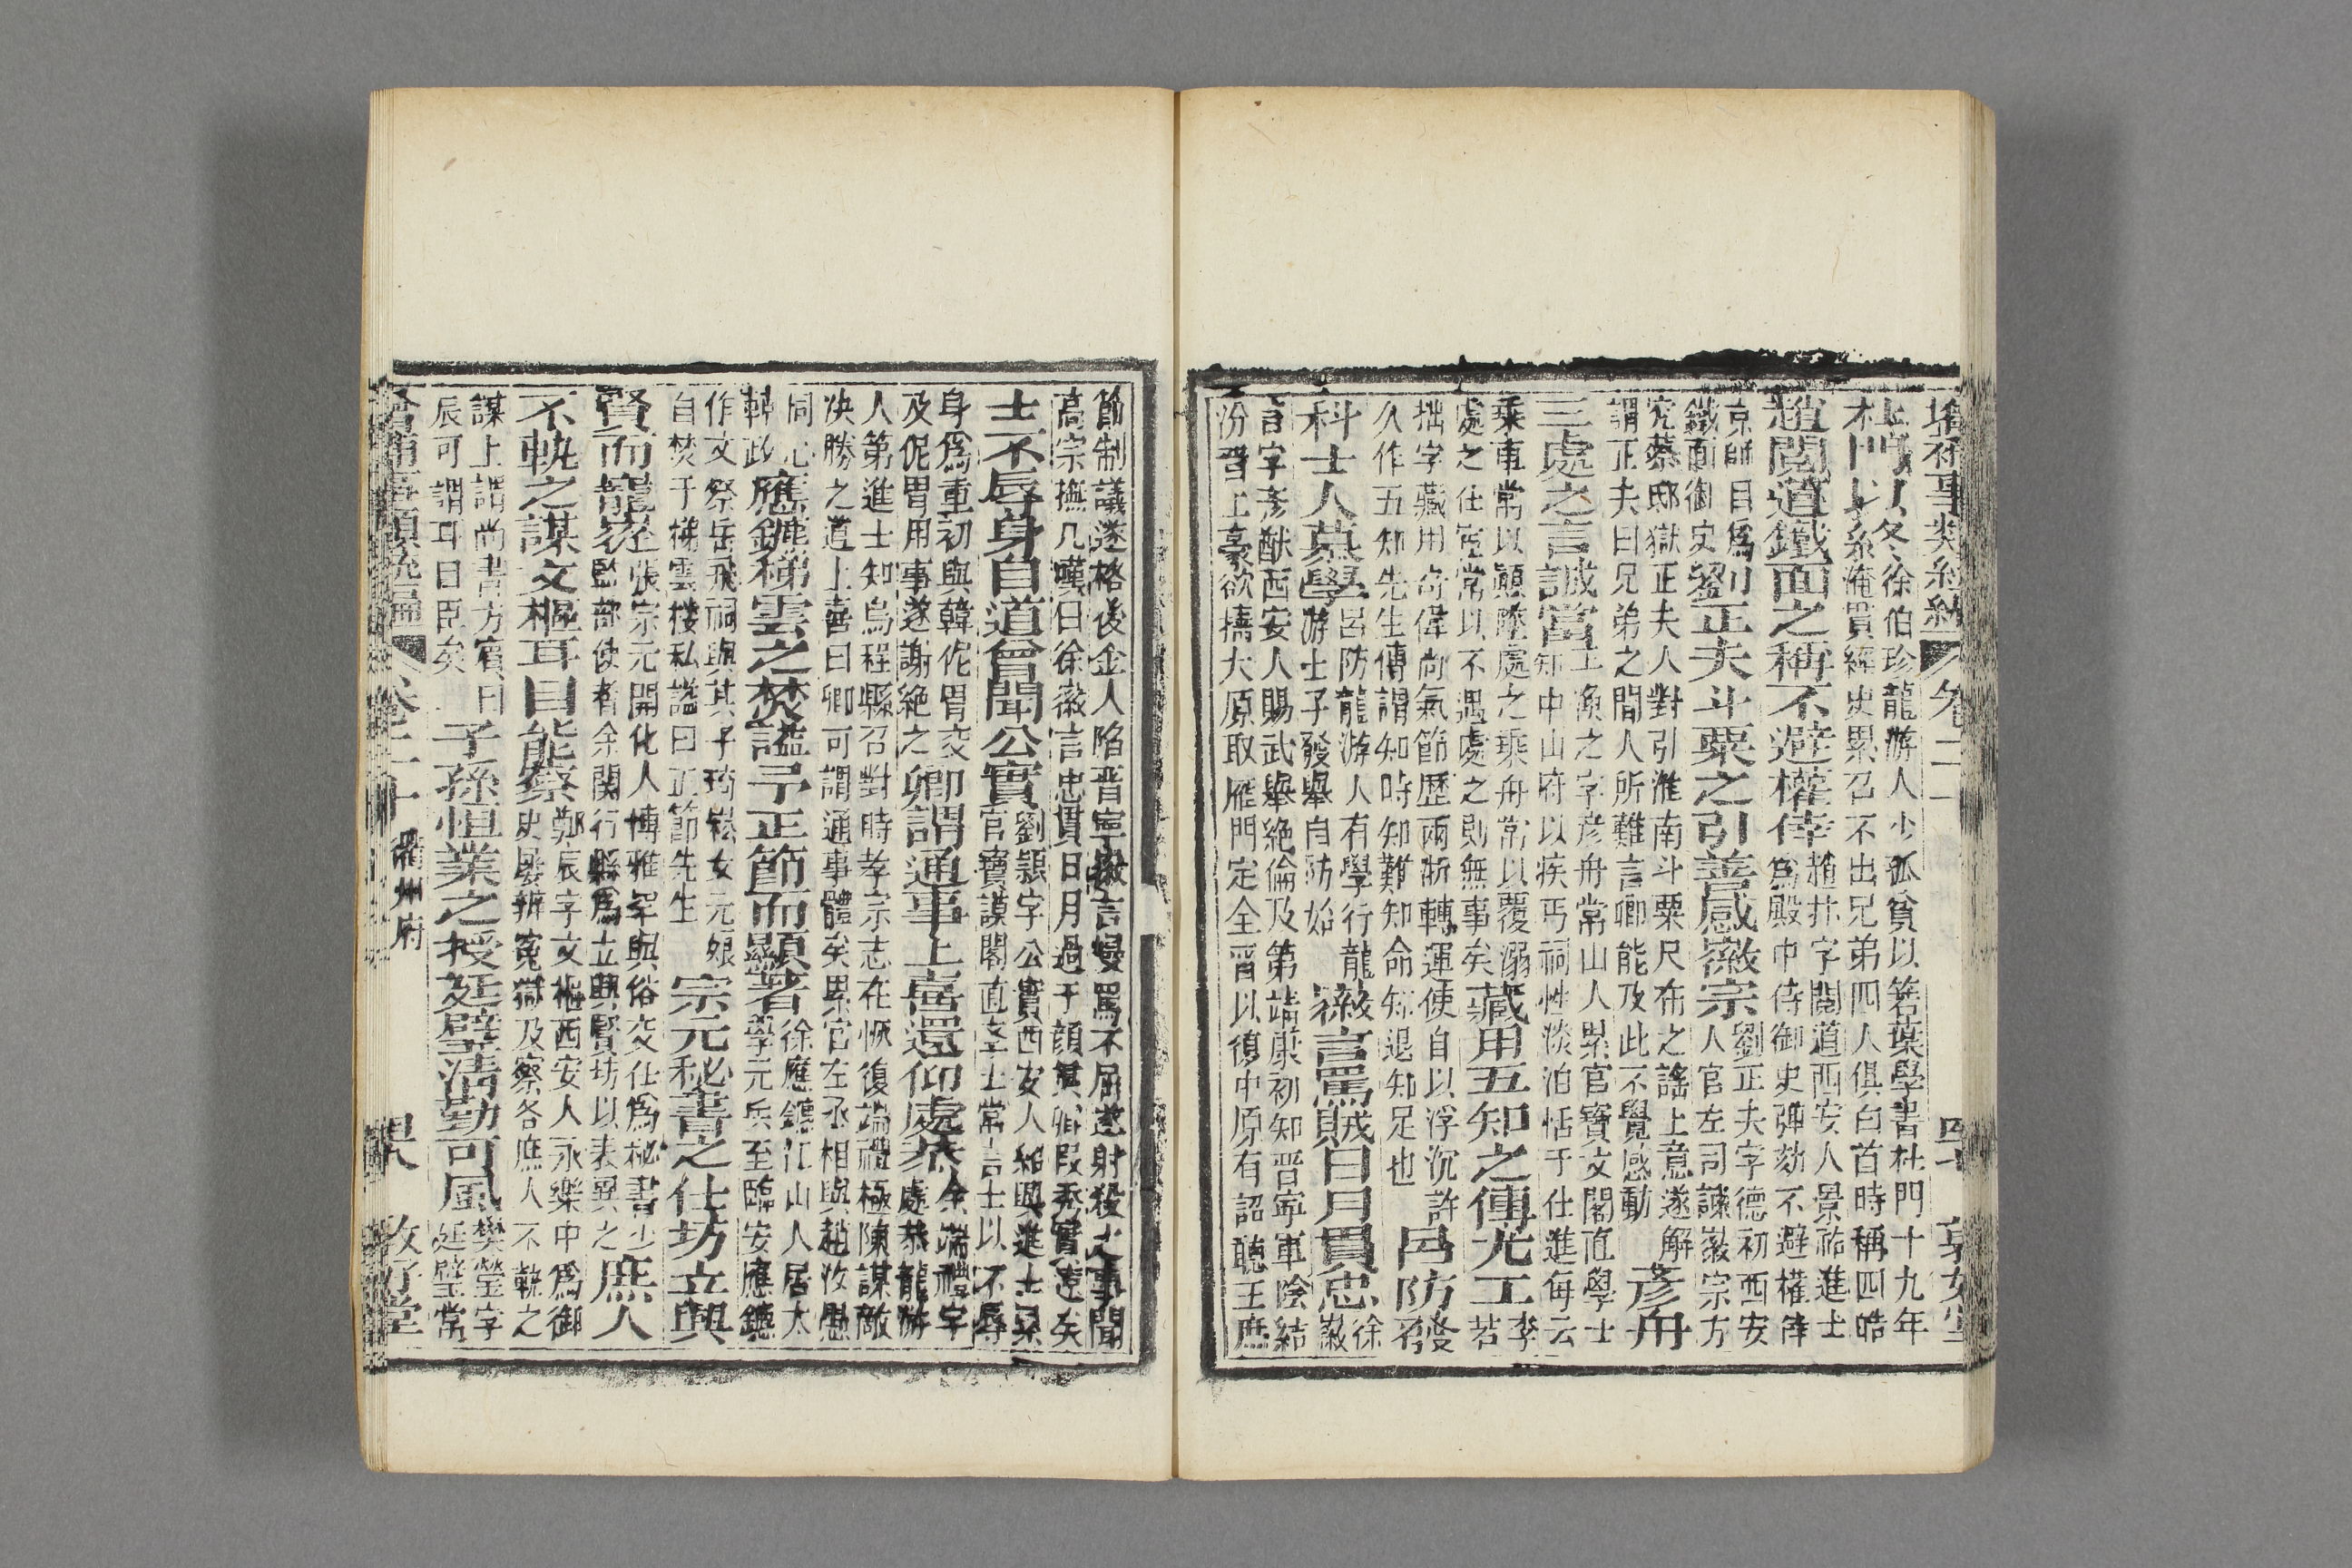 杜門以終徐伯珍龍游人少孤貧以箬葉學書杜門十九年
淹貫經史累召不出兄弟四人俱白首時稱四皓
趙閱道鐵面之稱不避權倖趙抃字閱道西安人景祐進士
爲殿中侍御史彈劾不避權倖
京師目爲
鐵面御史劉正夫斗粟之引善感徽宗劉正夫字德初西安
人官左司諫徽宗方
究蔡邸獄正夫入對引淮南斗粟尺布之謠上意遂解
謂正夫曰兄弟之間人所難言卿能及此不覺感動彥舟
三處之言誠當王渙之字彥舟常山人累官寶文閣直學士
知中山府以疾丐祠性淡泊恬于仕進每云
乘車常以顛墜處之乘舟常以覆溺
處之仕宦常以不遇處之則無事矣藏用五知之傳尤工李
若
拙字藏用奇偉尚氣節歷兩浙轉運使自以浮沉許
久作五知先生傳謂知時知難知命知退知足也呂防發
科士人慕學呂防龍游人有學行龍
游士子發舉自防始徽言罵賊日月貫忠徐
徽
言字彥猷西安人賜武舉絕倫及第靖康初知晋寧軍陰結
汾晋土豪欲擣大原取雁門定全晋以復中原有詔聽王庶
節制議遂格後金人陷晋寧徽言嫚罵不屈遂射殺之事聞
高宗撫几嘆曰徐徽言忠貫日月過于顏真卿叚秀實遠矣
士不辱身自道曾聞公實劉頴字公實西安人紹興進士累
官寶謨閣直學士常言士以不辱
身爲重初與韓侂胄交
及侂胄用事遂謝絕之卿謂通事上喜還仰處恭余端禮字
處恭龍游
人第進士知烏程縣召對時孝宗志在恢復端禮極陳謀敵
决勝之道上喜曰卿可謂通事體矣累官左丞相與趙汝愚
同心
輔政應鑣梯雲之焚謚予正節而顯著徐應鑣江山人居太
學元兵至臨安應鑣
作文祭岳飛祠與其子琦崧女元娘
自焚于梯雲樓私謚曰正節先生宗元秘書之仕坊立興
賢而寵岩張宗元開化人博雅罕與俗交仕爲秘書少
監部使者余闕行縣爲立興賢坊以表異之庶人
不軌之謀文樞耳目能察鄭辰字文樞西安人永樂中爲御
史屡辨寃獄及察各庶人不軌之
謀上謂尚書方賓曰
辰可謂耳目臣矣子孫恒業之授延壁清勤可風樊瑩字
廷璧常
卷二
卷二十
衢州府